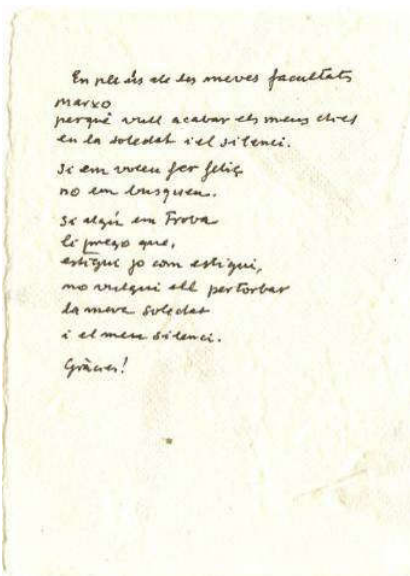 En ple ús de les meves facultats
marxo
perquè vull acabar els meus dies
en la soledat i el silenci.
Si em voleu fer feliç
no em busqueu.
Si algú em troba
li prego que,
estigui jo com estigui,
no vulgui ell pertorbar
la meva soledat
i el meu silenci.
Gràcies!